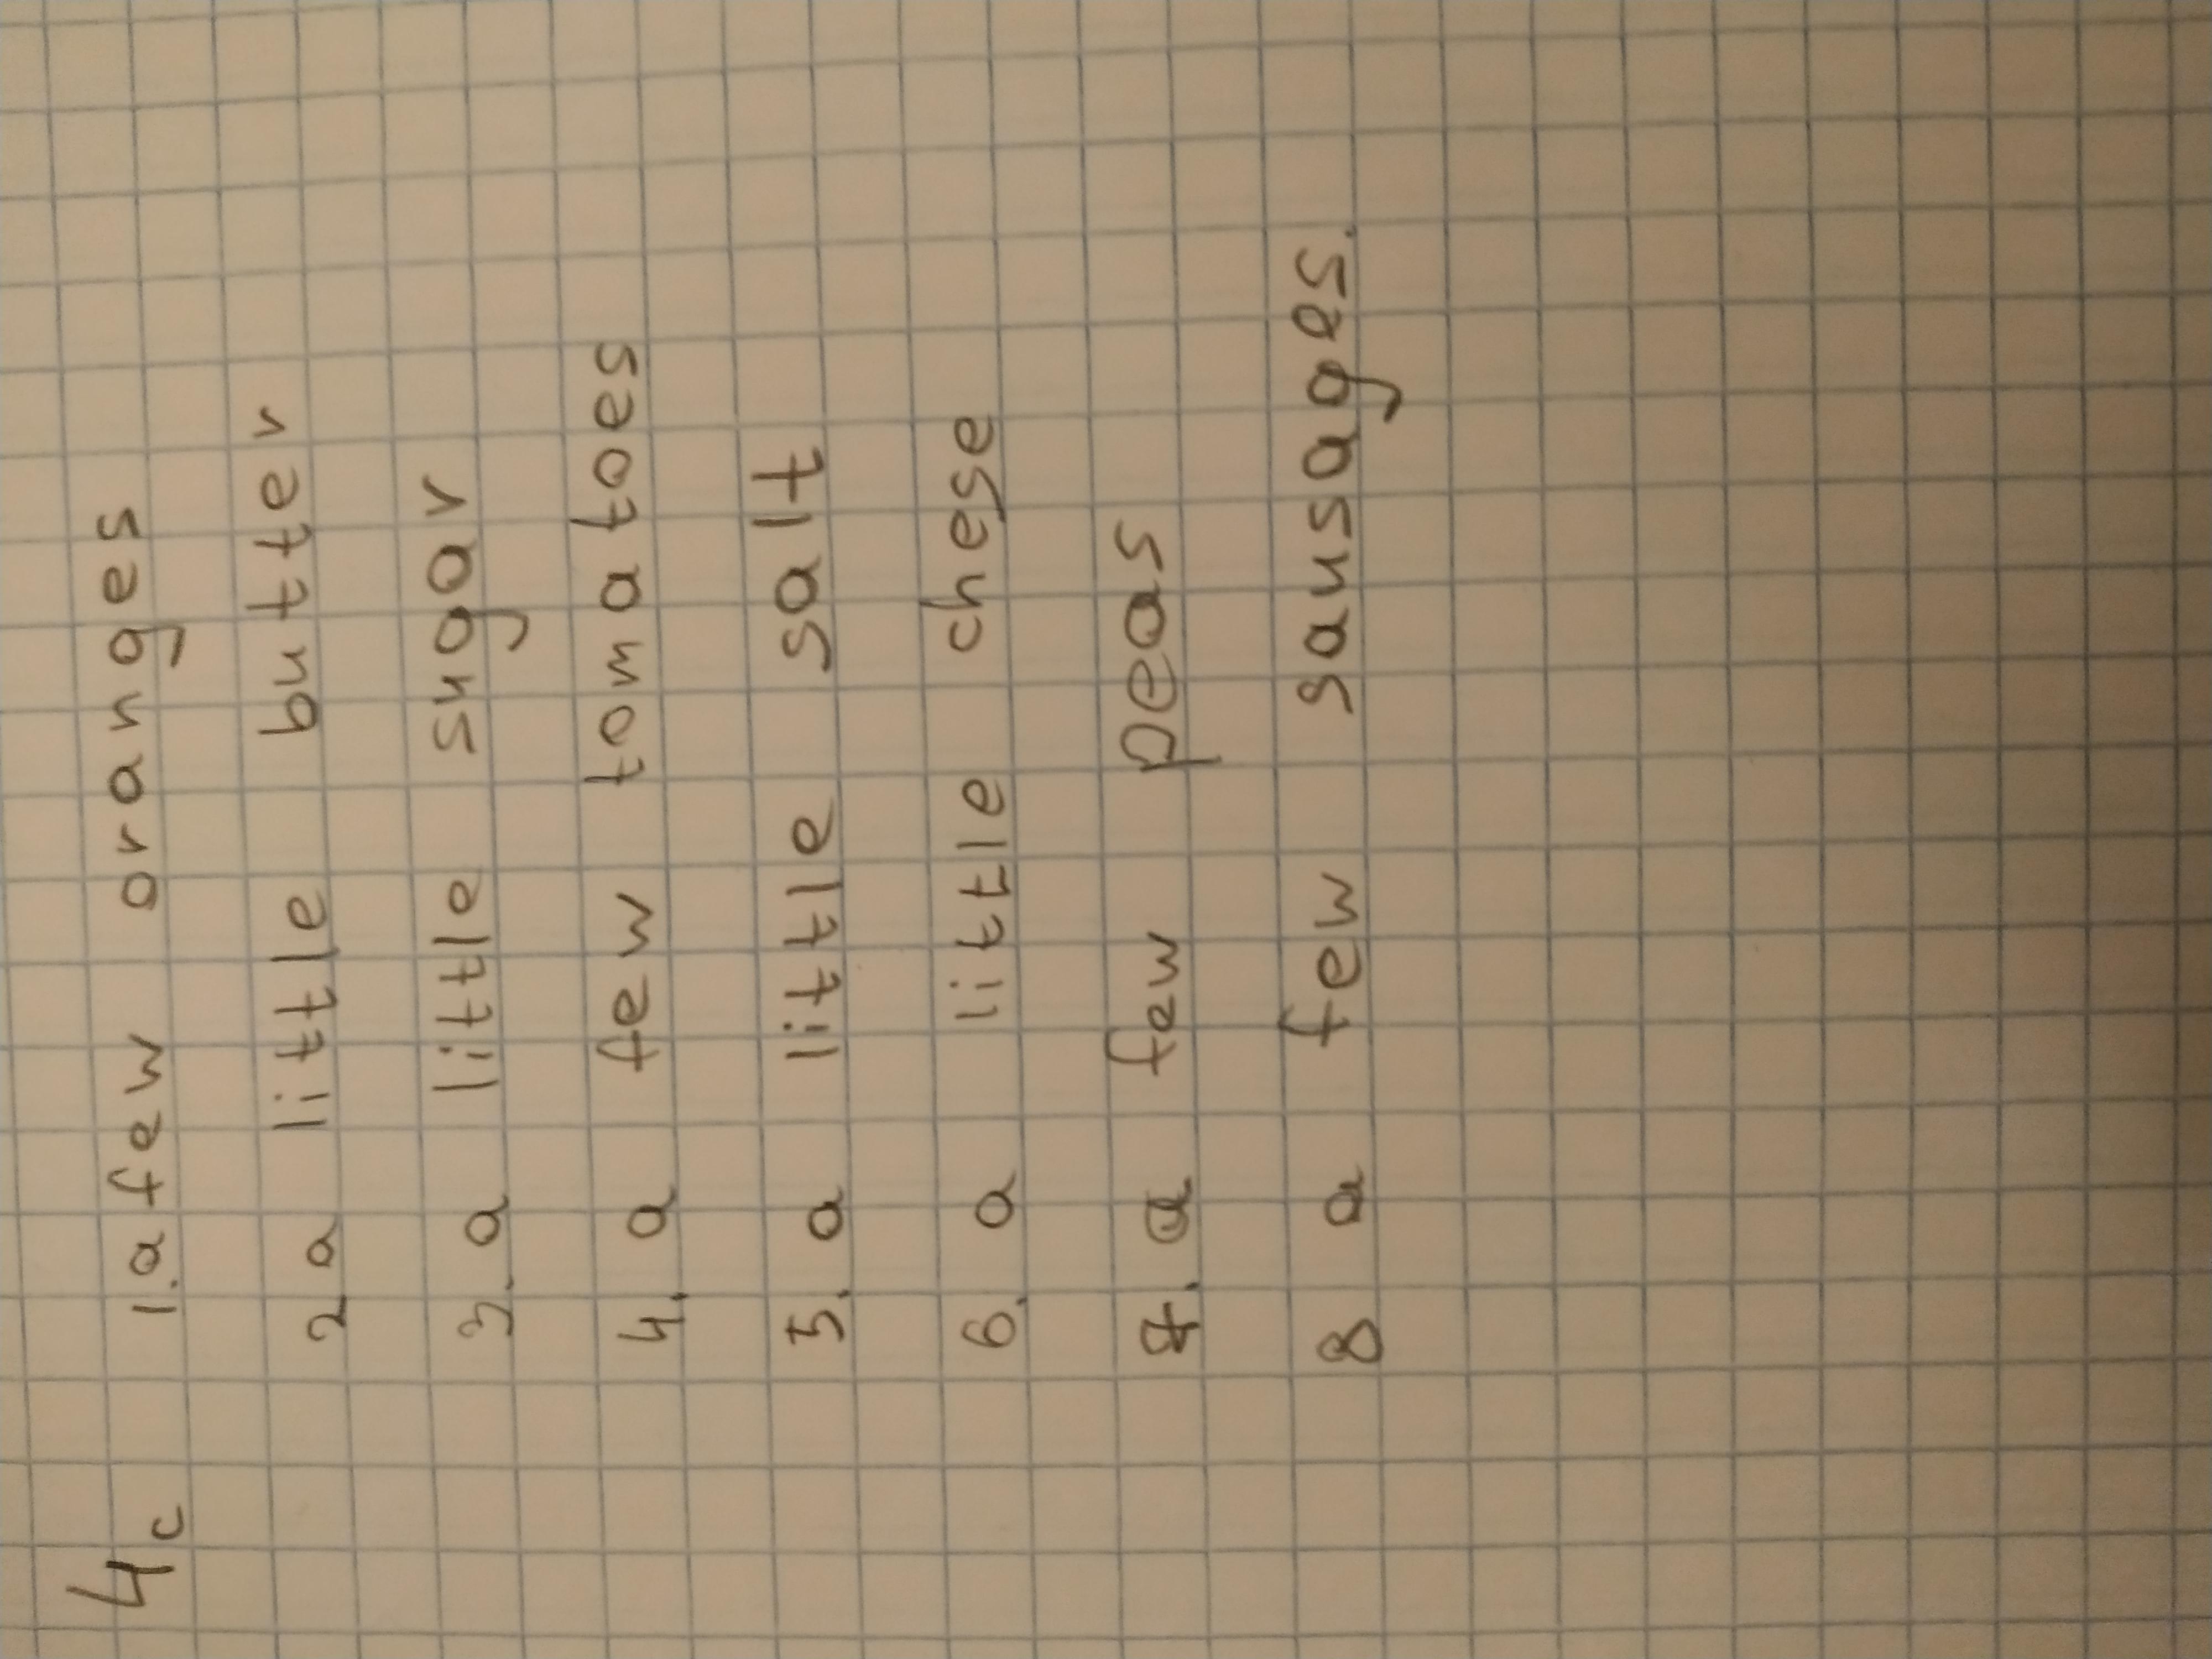 4c 1. a few oranges
2 a little butter
3. a little sugar
4. a few tomatoes
5. a little salt
6. a little chese
7. a few peas
8 a few sausages.